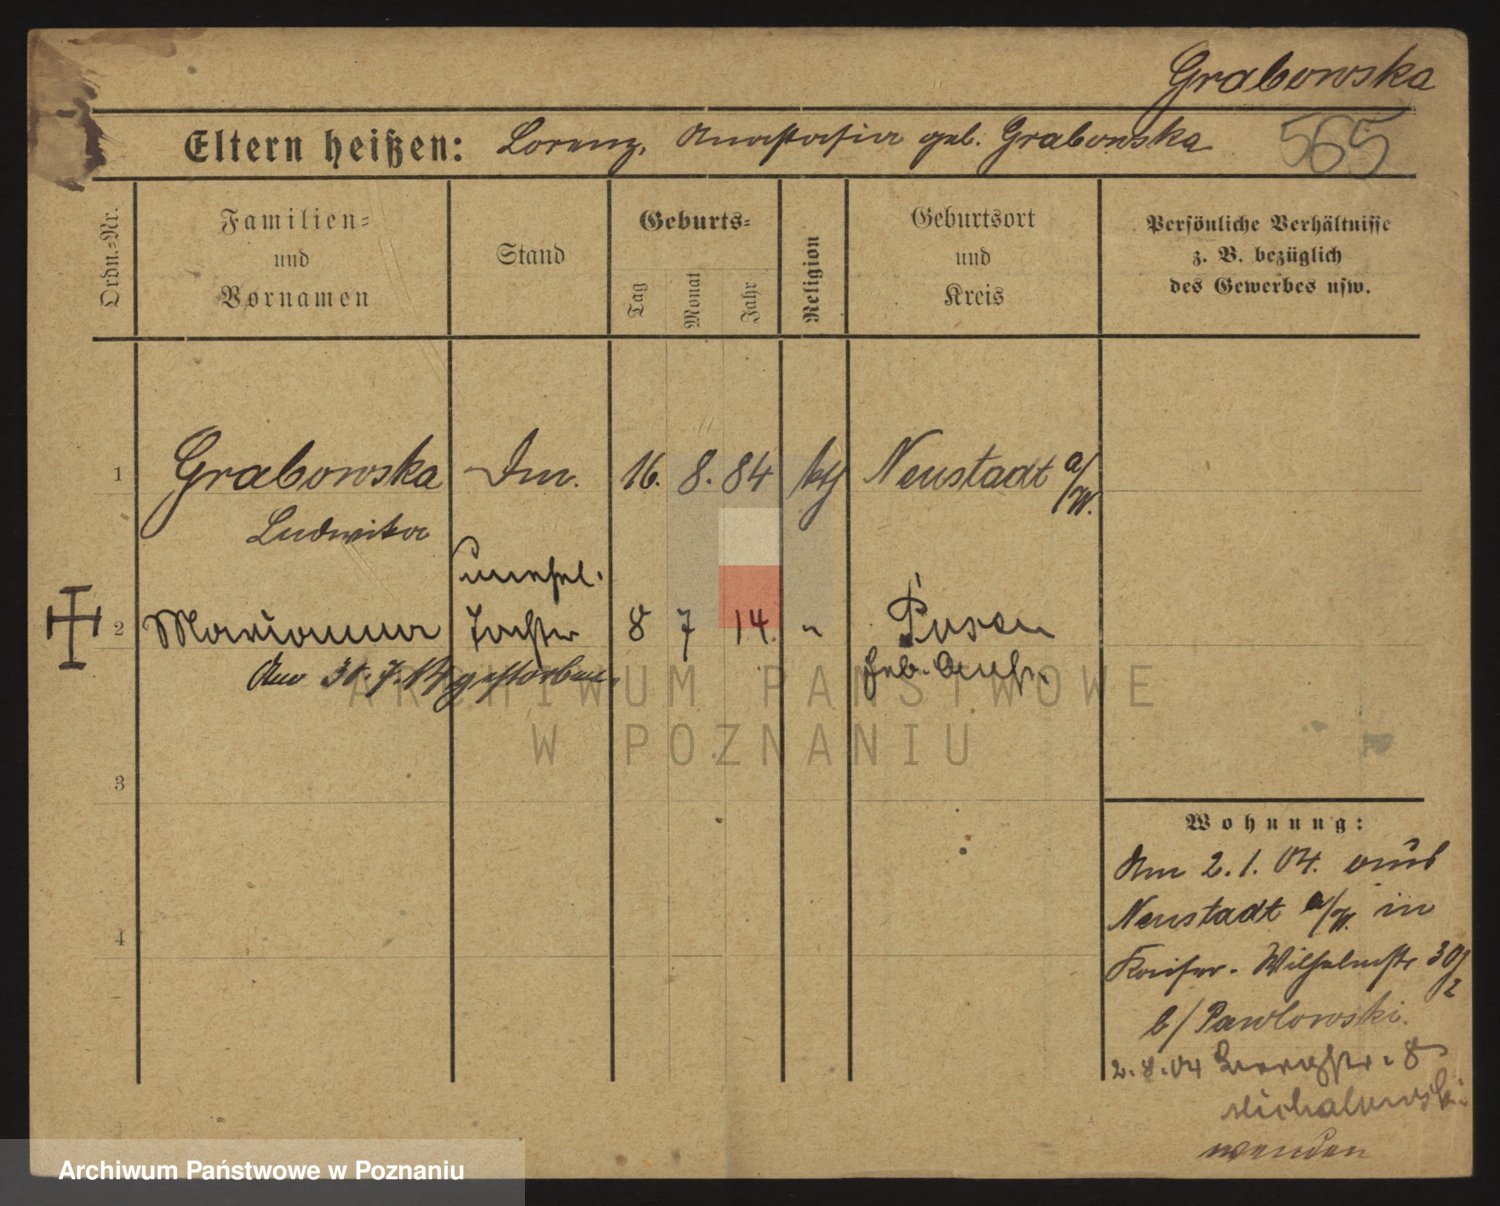 Grabowska
Eltern heißen: Lorenz, Anastasia geb. Grabowska
565
Ordn.=Nr.
Familien=
und
Vornamen
Stand
Geburts=
Tag
Monat
Jahr
Religion
Geburtsort
und
Kreis
Persönliche Verhältnisse
z. B. bezüglich
des Gewerbes usw.
1 Grabowska Dm. 16. 8. 84 kth Neustadt a/W.
Ludwika
unehel.
2 Marianna Tochter 8 7 14. " Posen
Am 31.7.14 gestorben. Geb. Anst.
3
4
Wohnung:
Am 2.1.04. aus
Neustadt a/W. in
Kaiser-Wilhelmstr 30/2
b/ Pawlowski.
2.8.04 8
Michalowski
wenden
ARCHIWUM PAŃSTWOWE
W POZNANIU
Archiwum Państwowe w Poznaniu